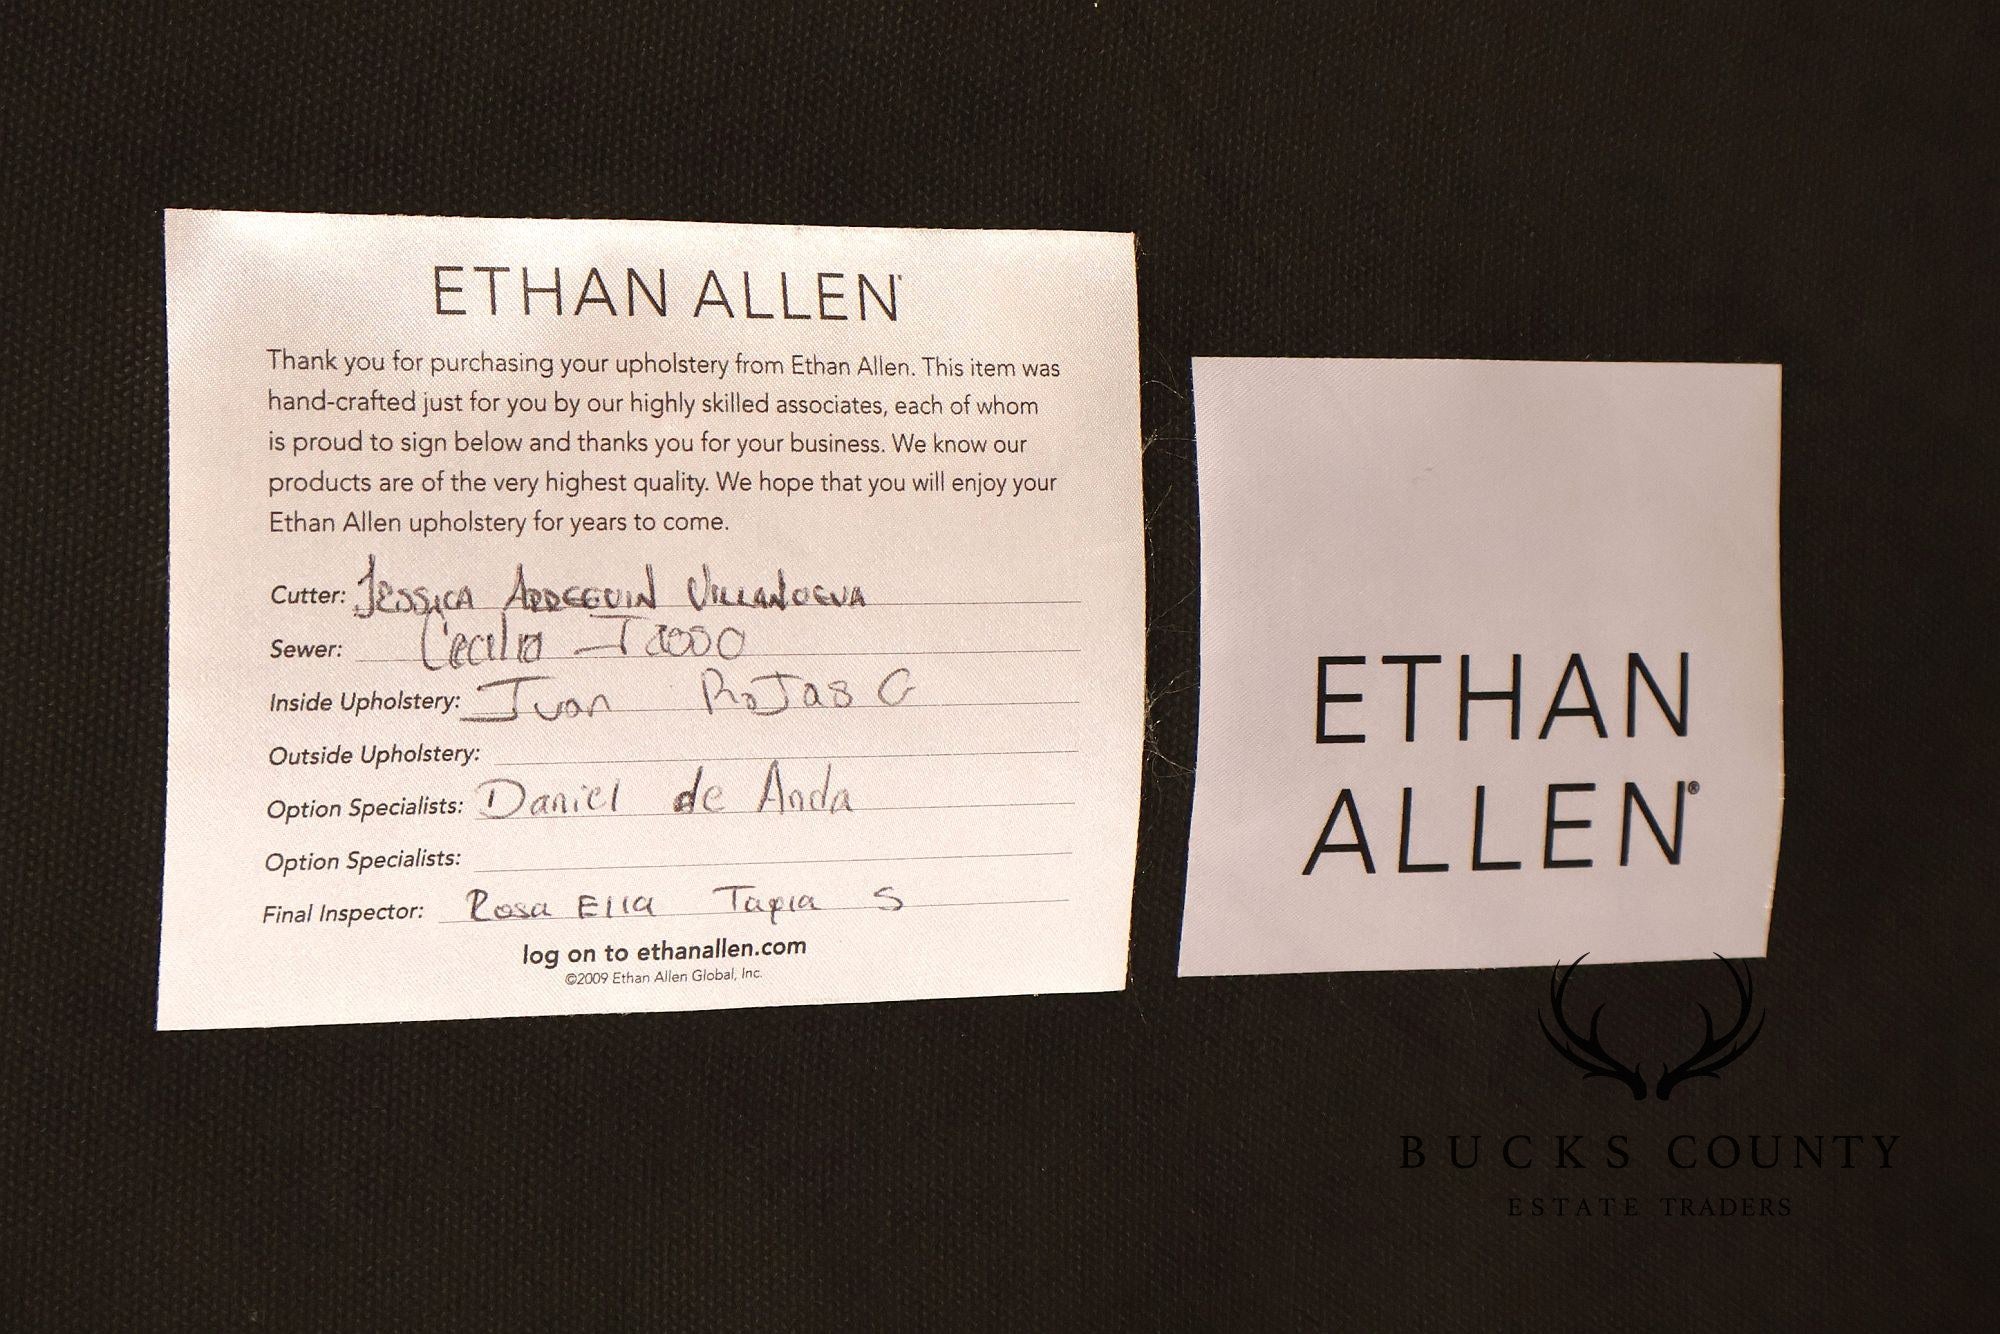 ETHAN ALLEN®
Thank you for purchasing your upholstery from Ethan Allen. This item was
hand-crafted just for you by our highly skilled associates, each of whom
is proud to sign below and thanks you for your business. We know our
products are of the very highest quality. We hope that you will enjoy your
Ethan Allen upholstery for years to come.
Cutter: JESSICA ARREGUIN VILLANUEVA
Sewer: Cecilia
Inside Upholstery: Juan Rojas G
Outside Upholstery:
Option Specialists: Daniel de Anda
Option Specialists:
Final Inspector: Rosa Ella Tapia S
log on to ethanallen.com
©2009 Ethan Allen Global, Inc.
ETHAN
ALLEN®
BUCKS COUNTY
ESTATE TRADERS